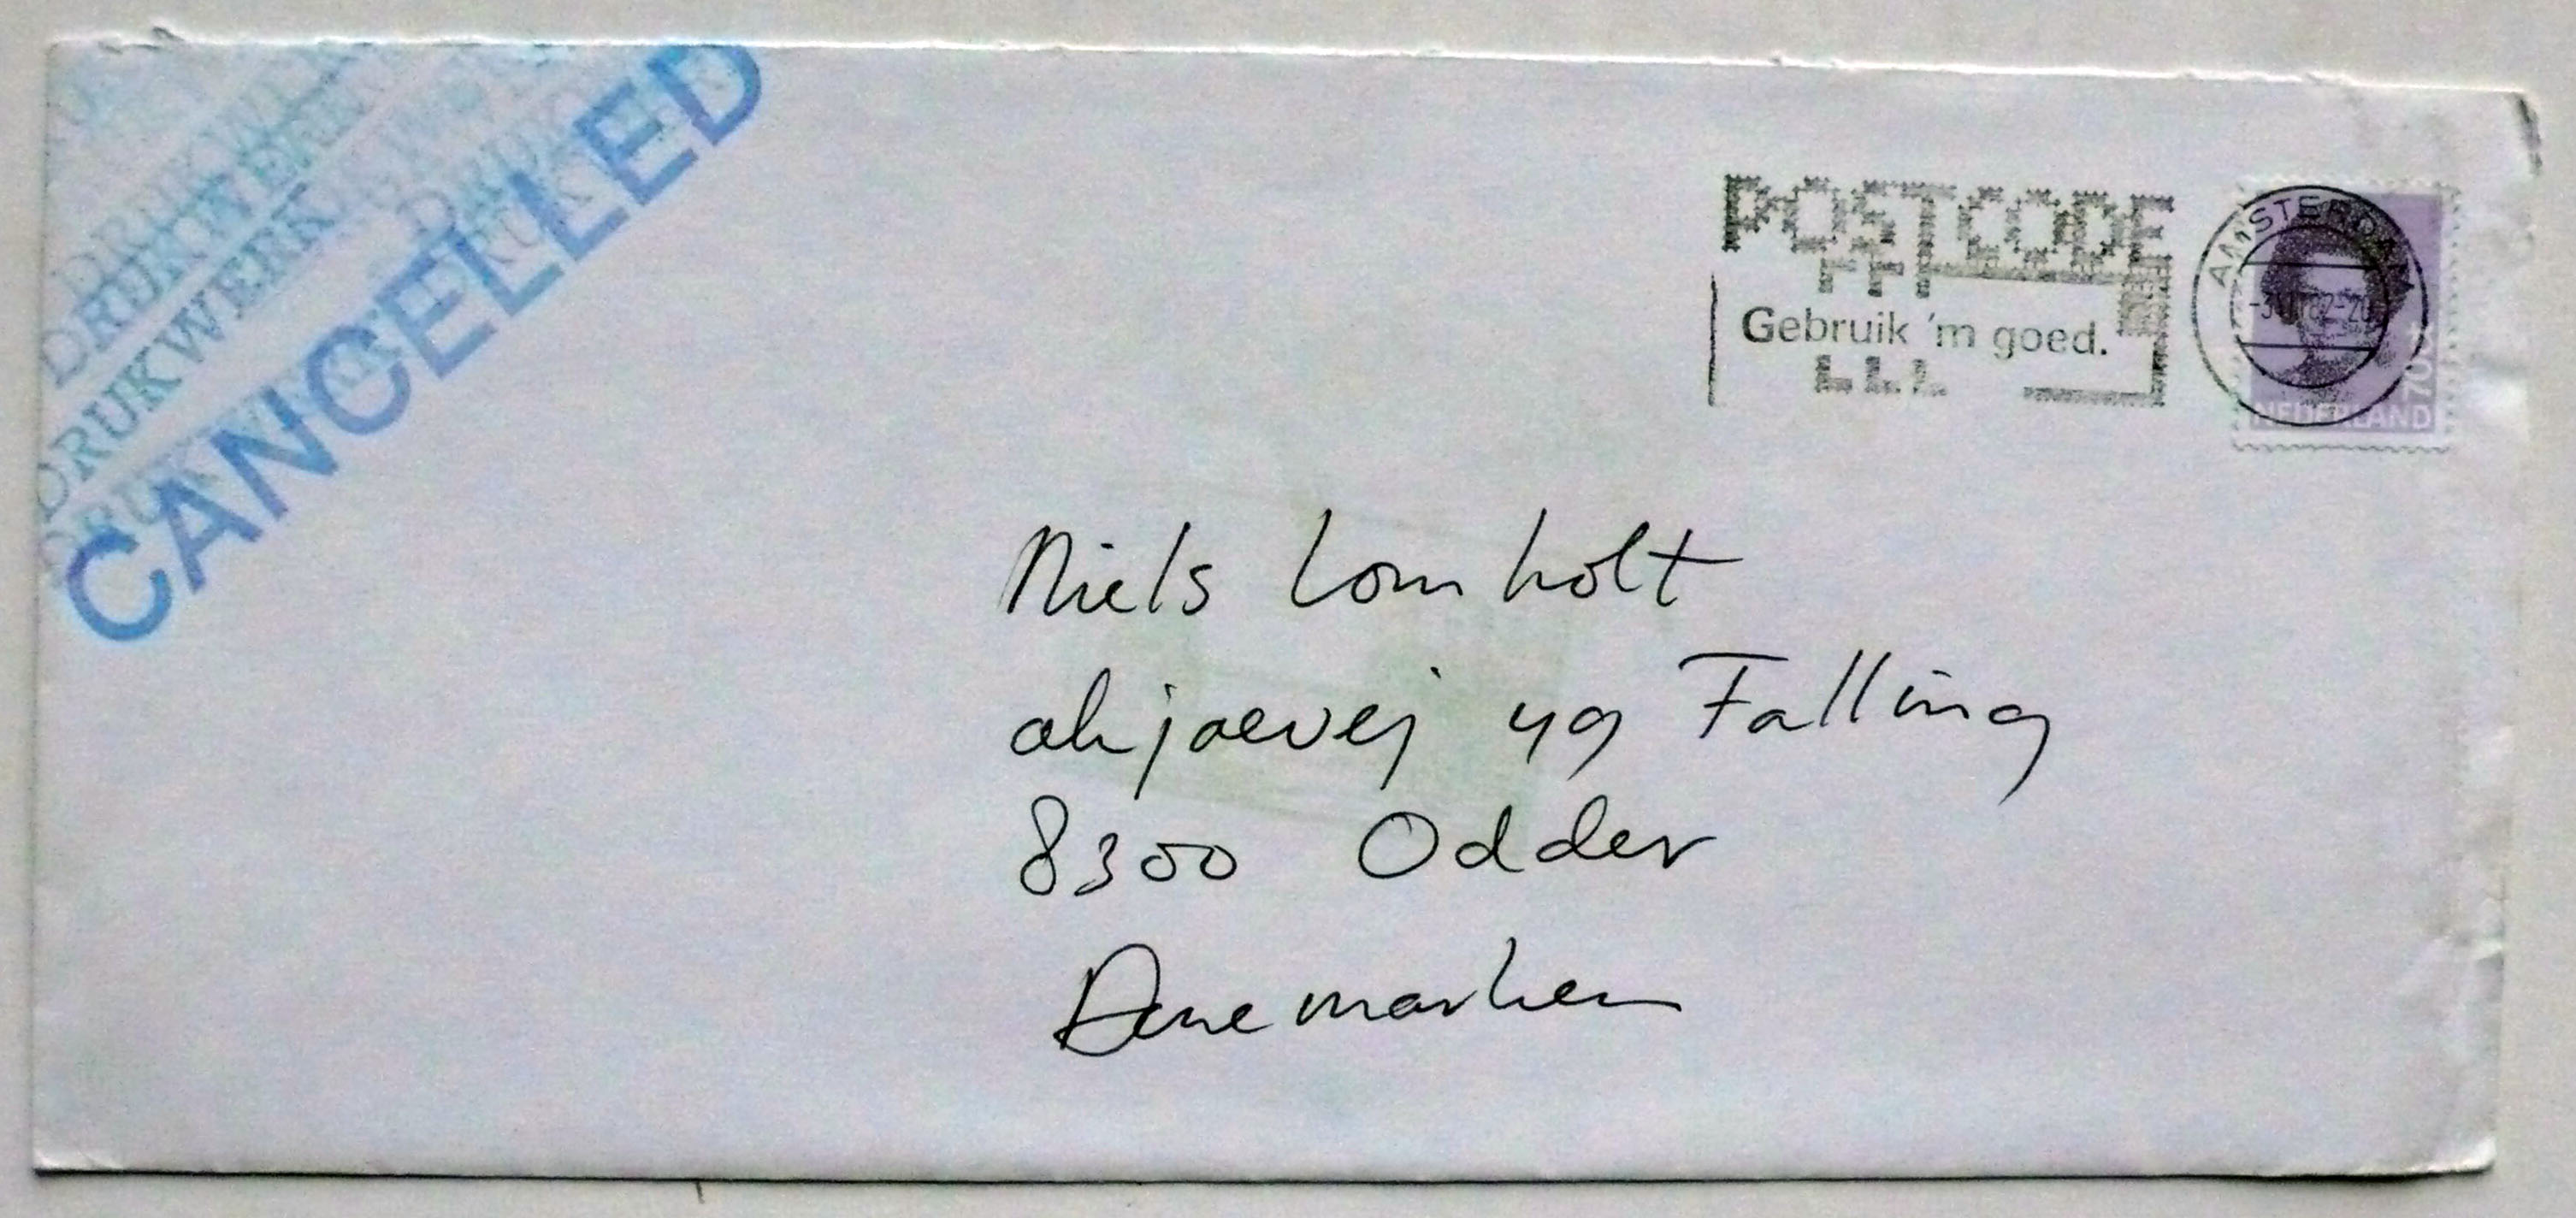 DRUKWERK
DRUKWERK
DRUKWERK
CANCELLED
POSTCODE
Gebruik 'm goed.
AMSTERDAM
70ct
NEDERLAND
Niels Lomholt
akjaevej 49 Falling
8300 Odder
Denemarken